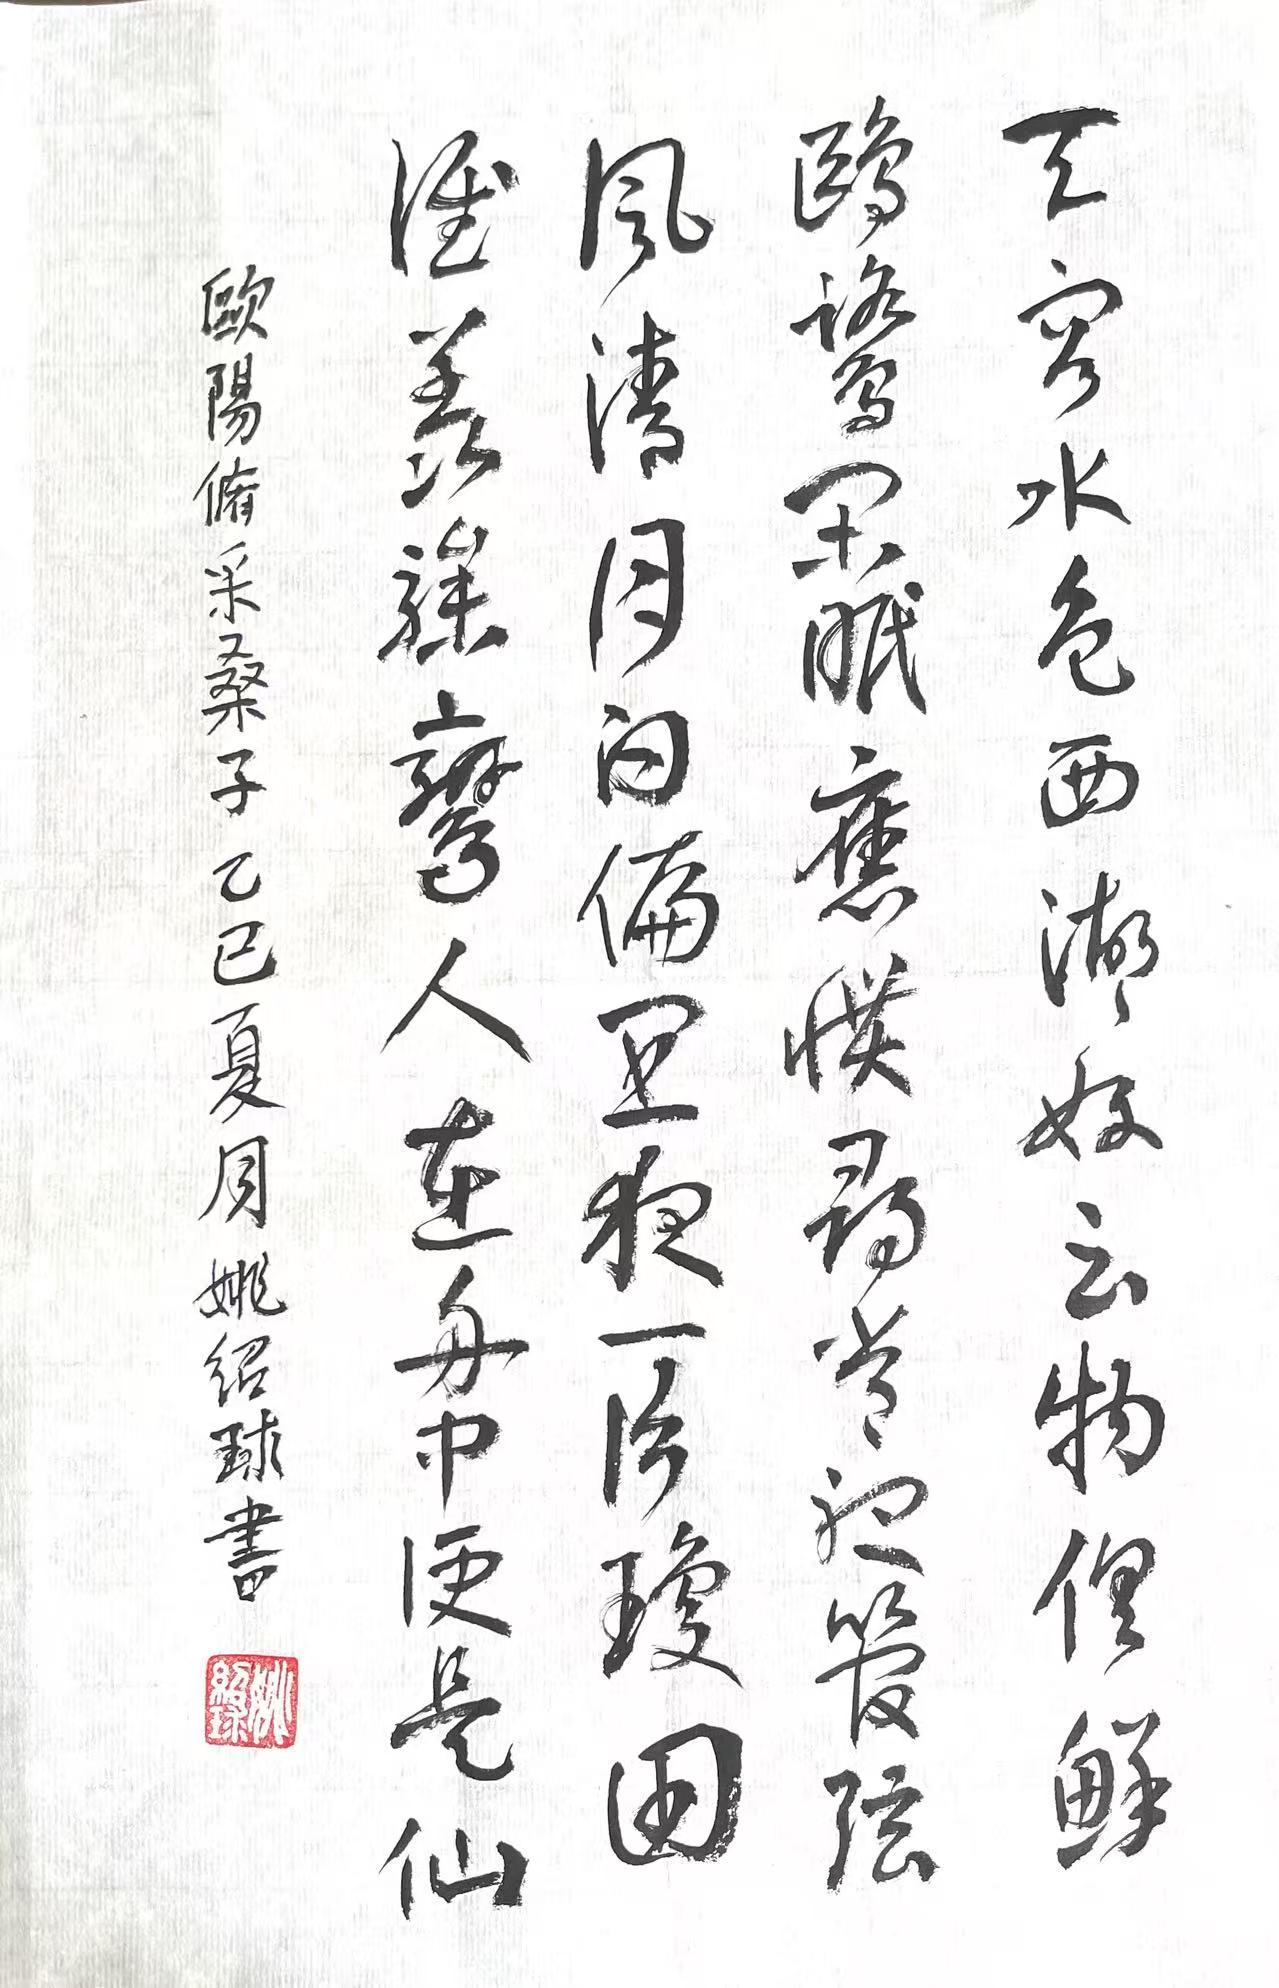 天容水色西湖好云物俱鲜
鷗鷺闲眠應慣尋常聽管弦
風清月白偏宜夜一片瓊田
誰羡驂鸞人在舟中便是仙
歐陽脩采桑子乙巳夏月姚绍球書
姚绍球